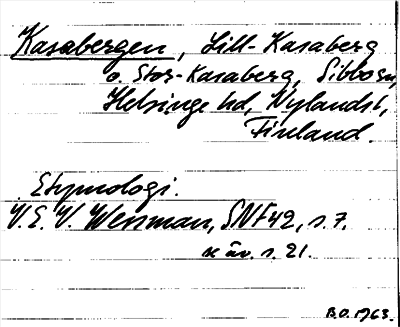 Kasabergen, Lill-Kasaberg
o. Stor-Kasaberg, Sibbo sn,
Helsinge hd, Nylands l,
Finland.
Etymologi.
V. E. V. Wessman, SNF 42, s. 7.
äv. s. 21.
B.O. 1963.